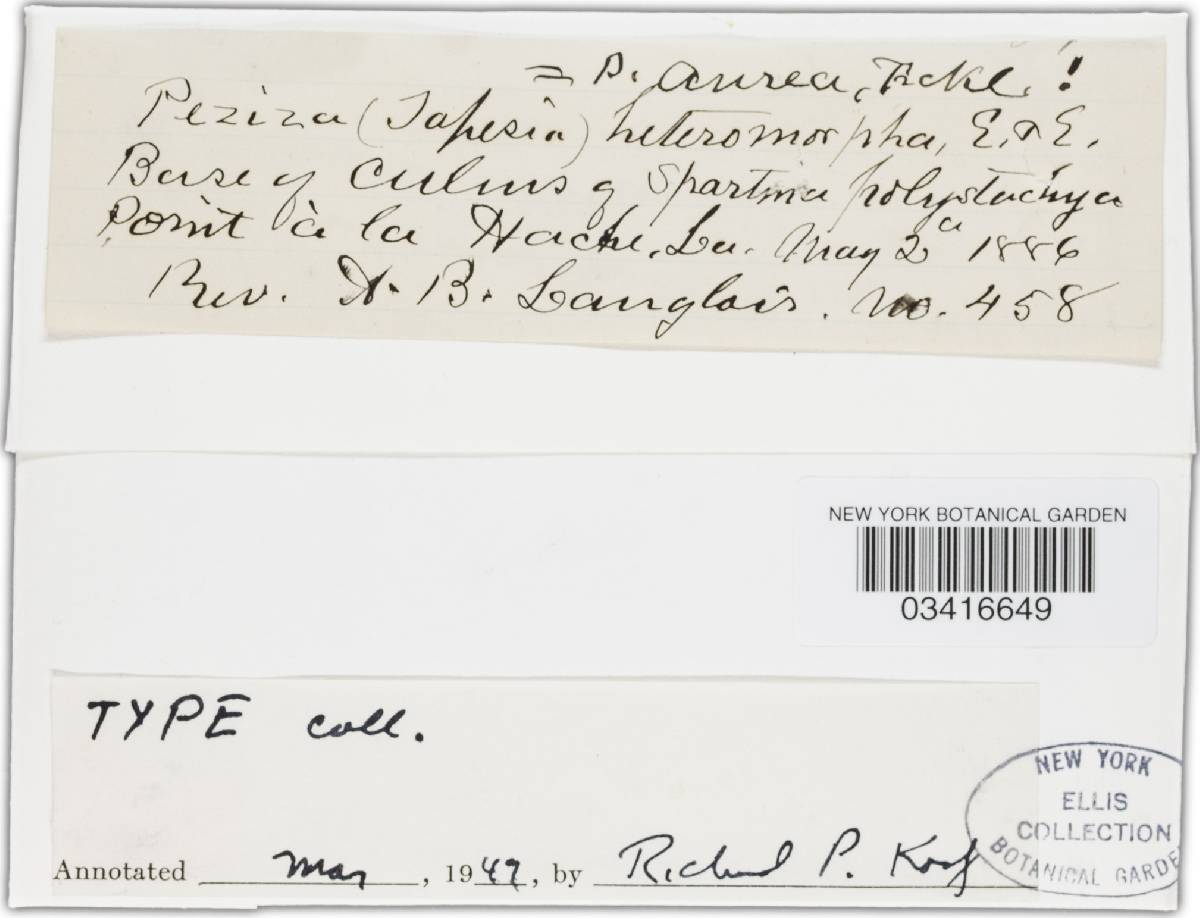 = P. aurea, Fckl. !
Peziza (Tapesia) heteromorpha, E. & E.
Base of culms of Spartina polystachya
Point à la Hache, La. May 2ᵈ 1886
Rev. A. B. Langlois. no. 458
NEW YORK BOTANICAL GARDEN
03416649
TYPE coll.
NEW YORK
ELLIS
COLLECTION
BOTANICAL GARDE
Annotated May, 1947, by Richard P. Korf